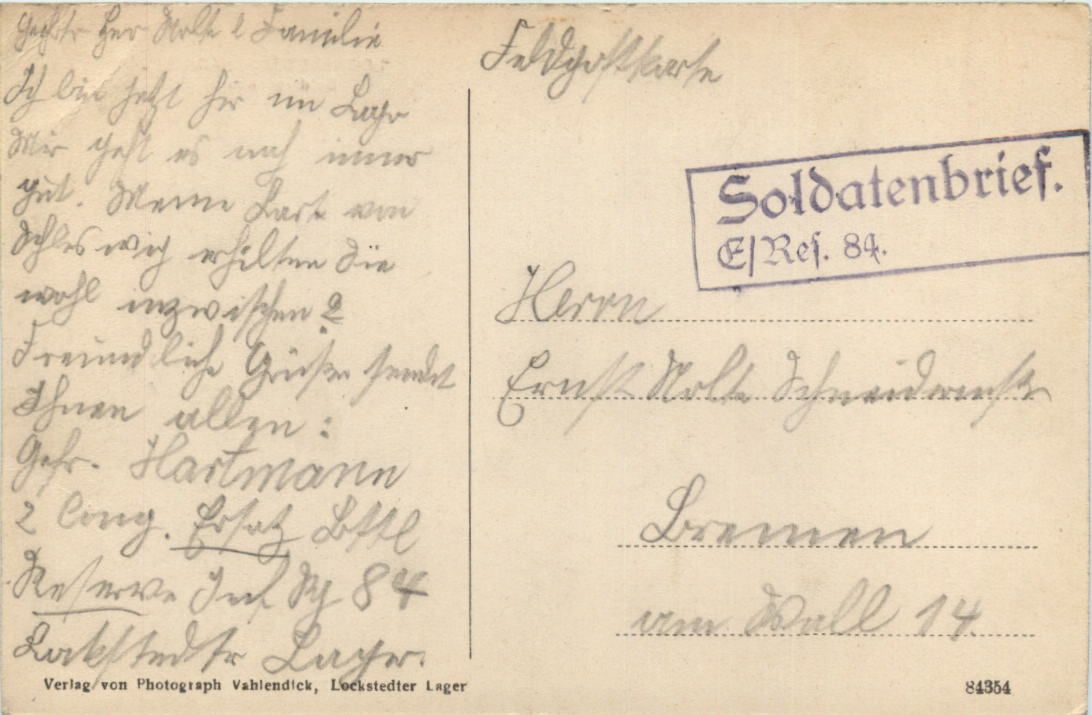 Geehrter Herr Nolte & Familie
Ich bin jetzt hir im Lager
Mir geht es noch immer
gut. Meine Karte von
Schleswig erhielten Sie
wohl inzwischen?
Freundliche Grüße sendet
Ihnen allen:
Gefr. Hartmann
2 Comp. Ersatz Battl
Reserve Inf. Rg 84
Lockstedter Lager.
Verlag von Photograph Vahlendick, Lockstedter Lager
Feldpostkarte
Soldatenbrief.
E/Res. 84.
Herrn
Ernst Nolte
Bremen
am Wall 14.
84354